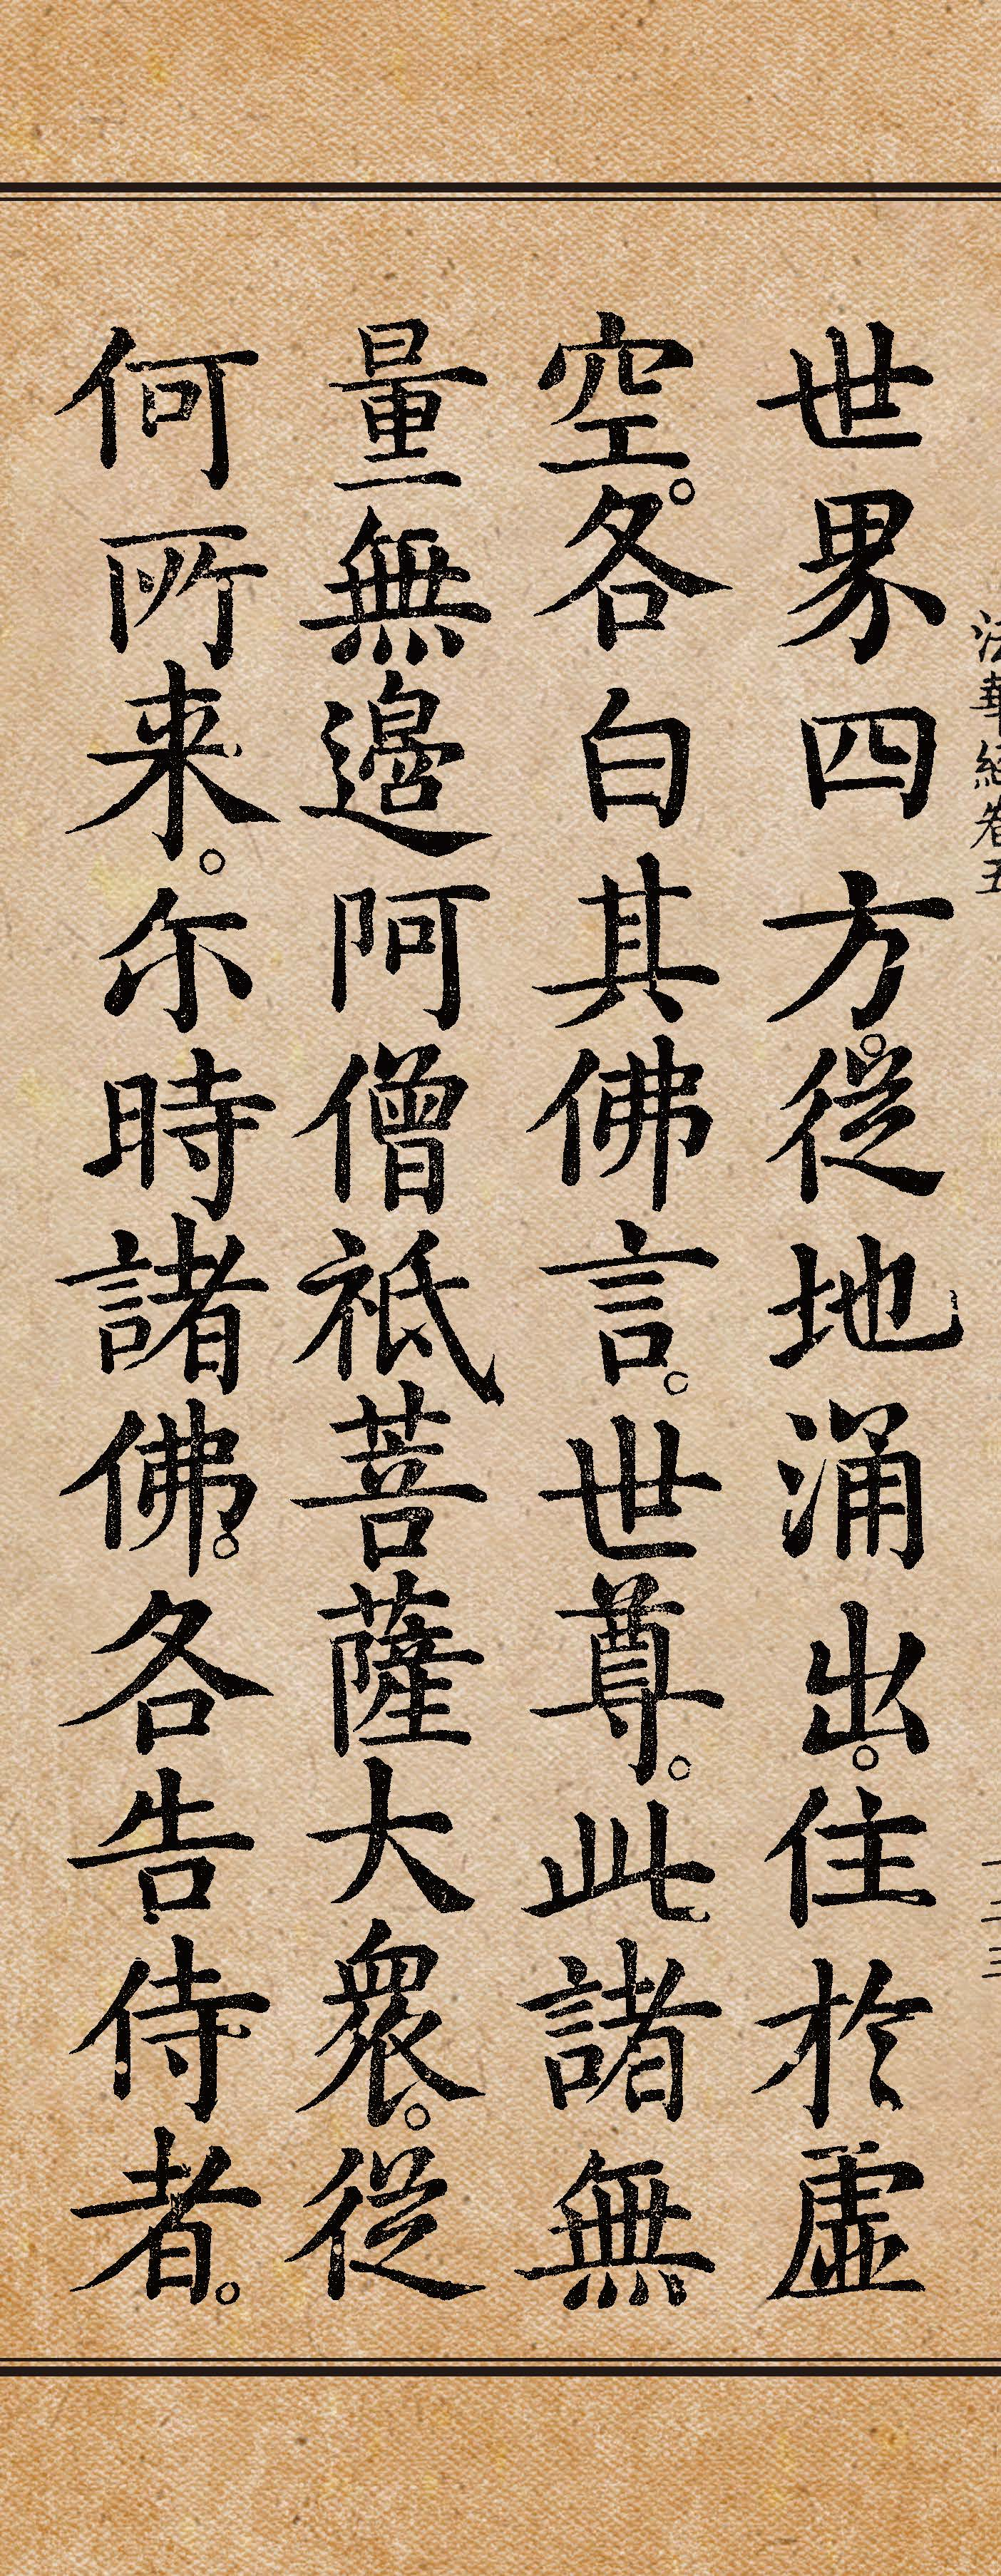 法華經卷五
二三
世界四方。從地涌出。住於虛
空。各白其佛言。世尊。此諸無
量無邊阿僧祇菩薩大衆。從
何所来。尔時諸佛。各告侍者。